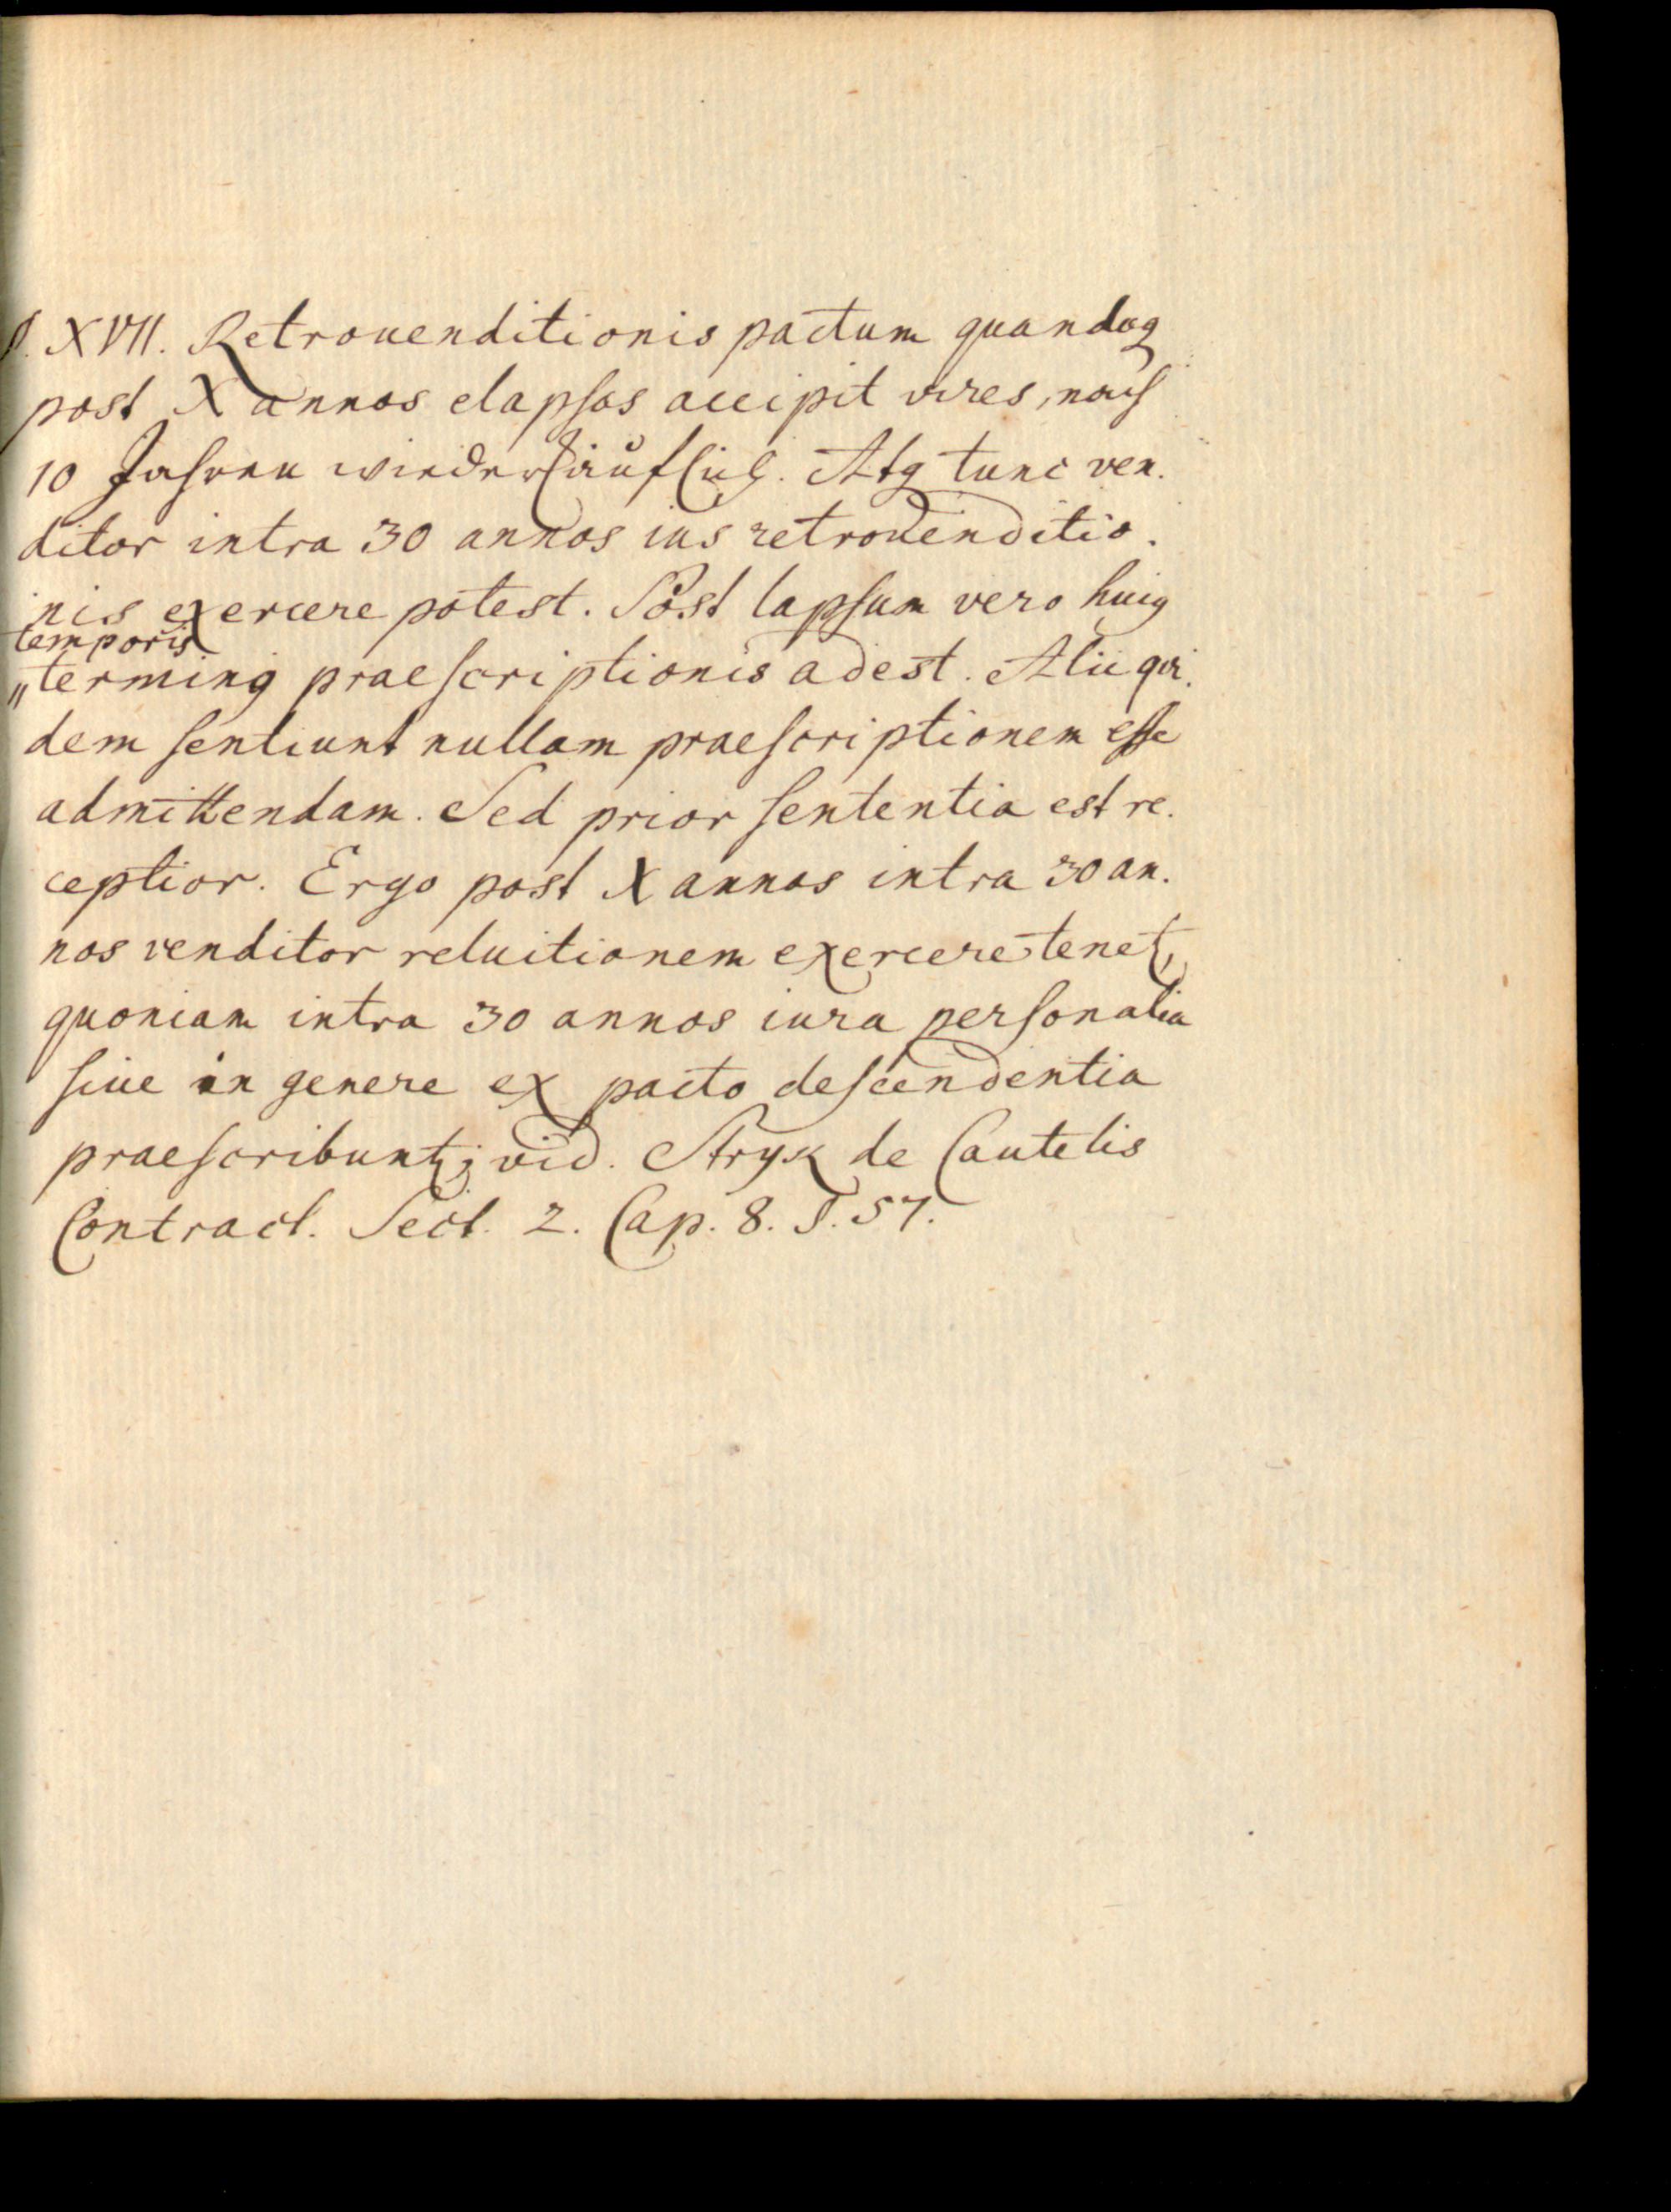 §. XVII. Retrouenditionis pactum quandoq
post X annos elapsos accipit vires, nach
10 Jahren wiederkäuflich. Atq tunc ven-
ditor intra 30 annos ius retrouenditio-
nis exercere potest. Post lapsum vero huig
temporis
" terming praescriptionis adest. Alii qui-
dem sentiunt nullam praescriptionem esse
admittendam. Sed prior sententia est re-
ceptior. Ergo post X annos intra 30 an-
nos venditor reluitionem exercere tenet,
quoniam intra 30 annos iura personalia
siue in genere ex pacto descendentia
praescribunt; vid. Stryk de Cautelis
Contract. Sect. 2. Cap. 8. §. 57.